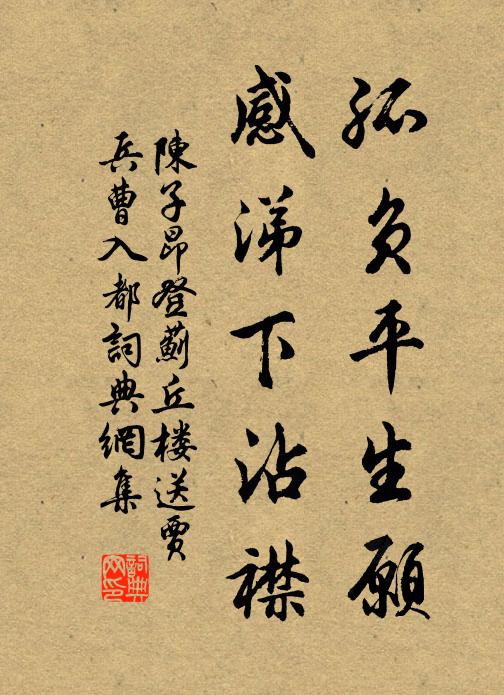 孤负平生願
感涕下沾襟
陳子昂登薊丘楼送賈
兵曹入都詞典網集
詞典
网印